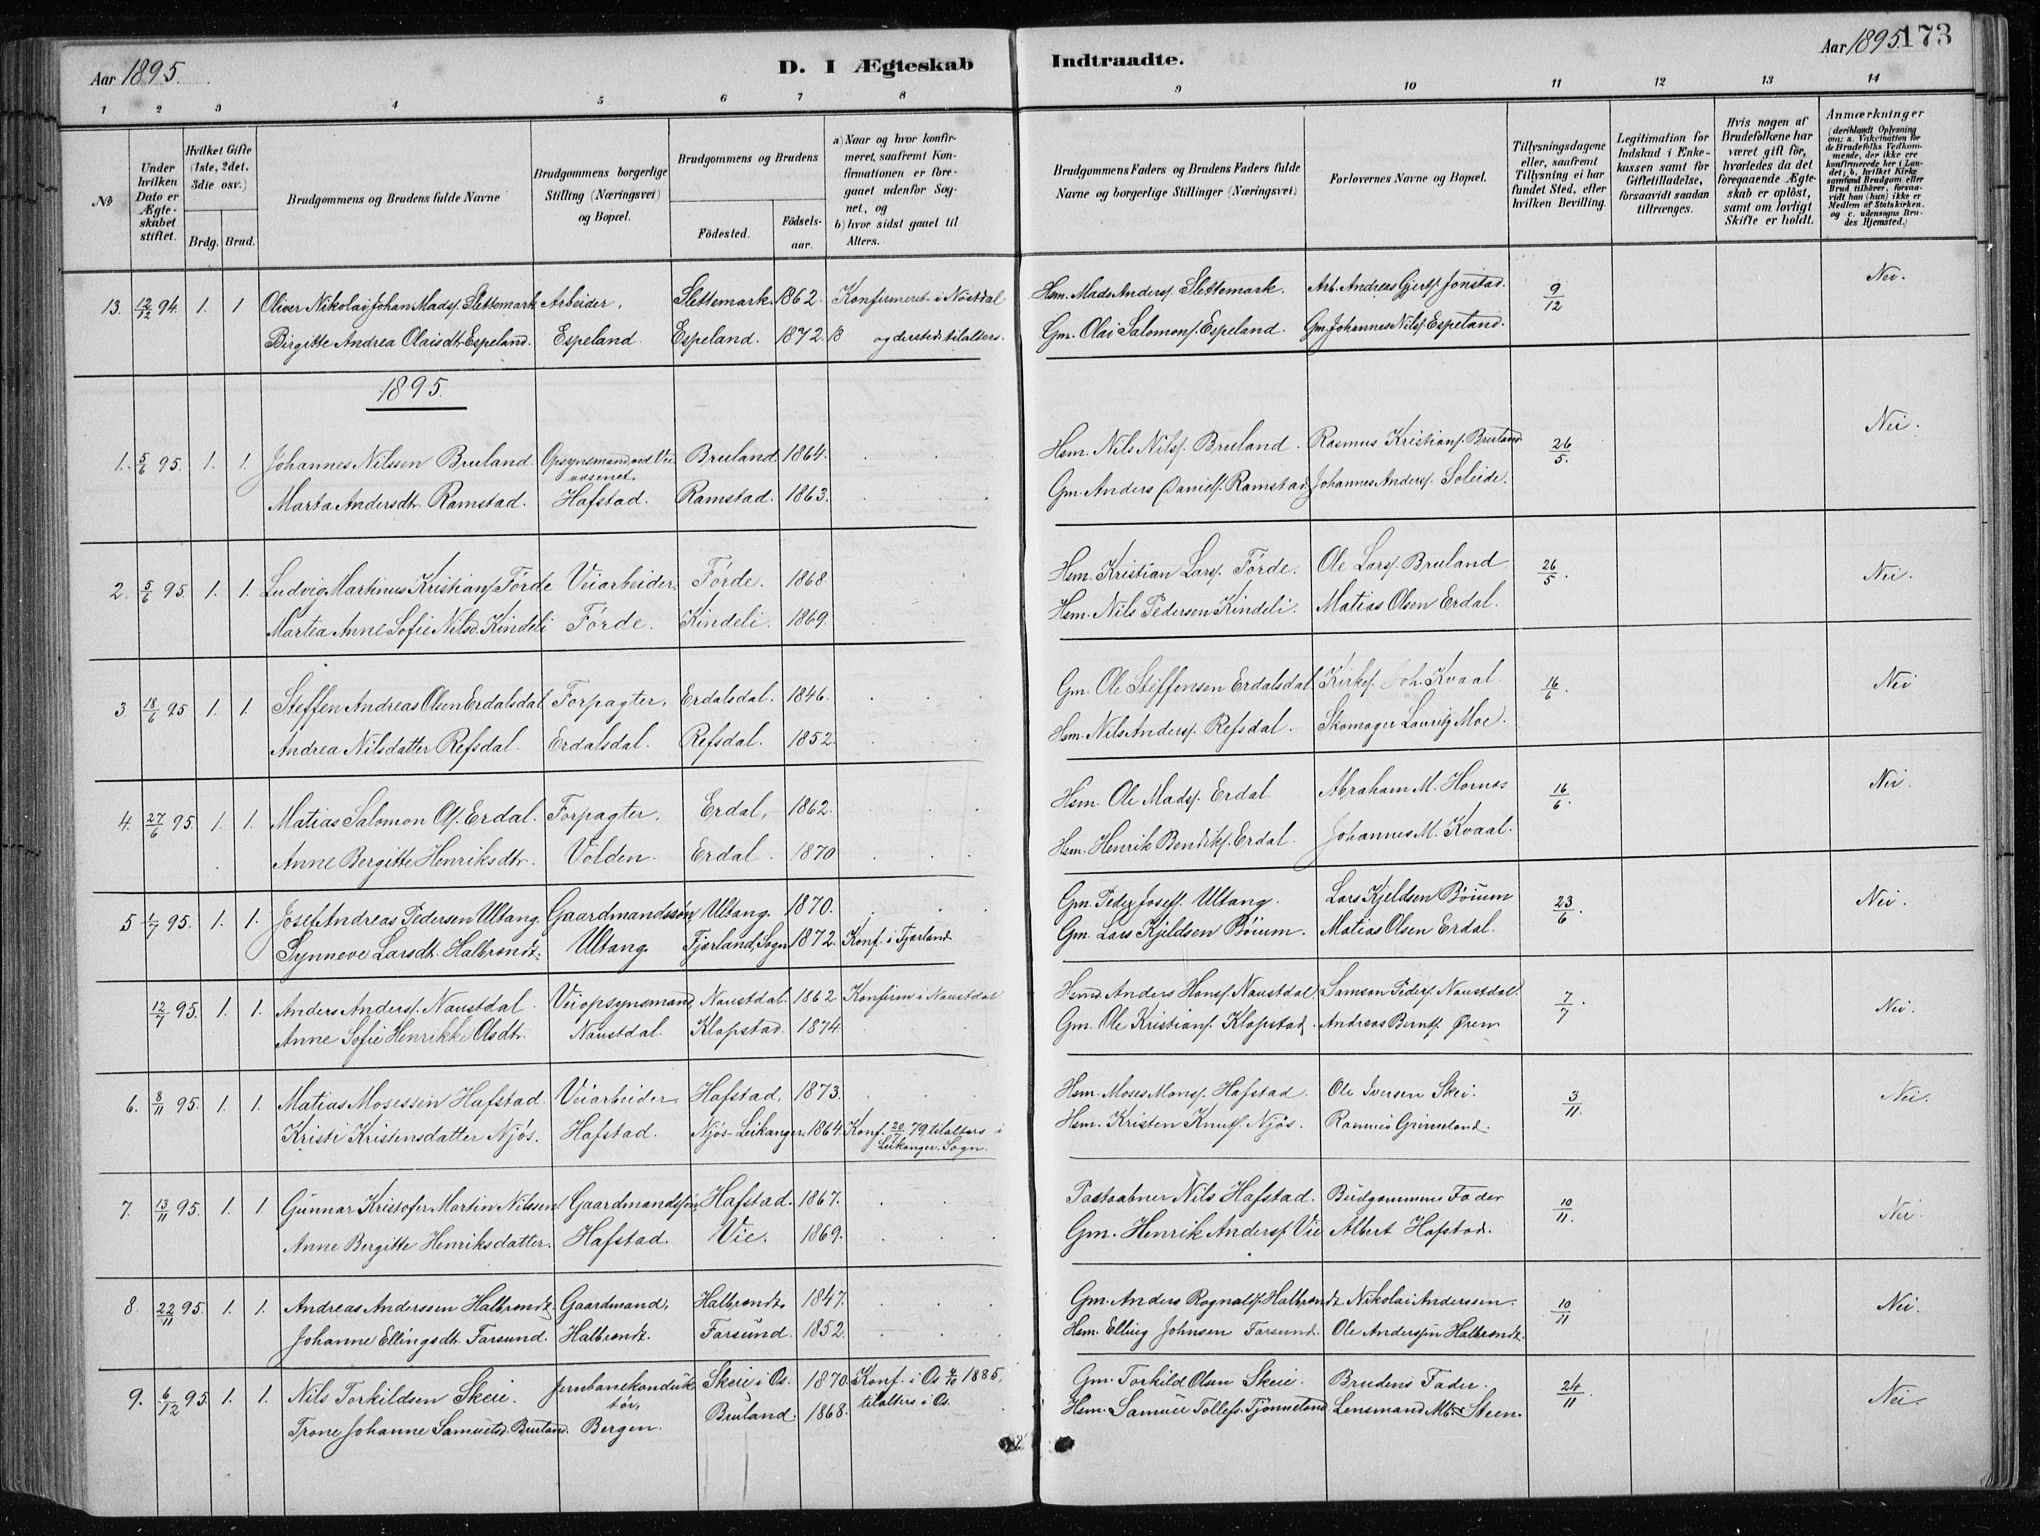 Aar 1895.
D. I Ægteskab Indtraadte.
Aar 1895. 173
1 2 3 4 5 6 7 8 9 10 11 12 13 14
No
Under hvilken Dato er Ægteskabet stiftet.
Hvilket Gifte (1ste, 2det, 3die osv.)
Brdg. Brud.
Brudgommens og Brudens fulde Navne
Brudgommens borgerlige Stilling (Næringsvei) og Bopæl.
Brudgommens og Brudens
Fødested.
Fødselsaar.
a) Naar og hvor konfirmeret, saafremt Konfirmationen er foregaaet udenfor Sognet, og
b) hvor sidst gaaet til Alters.
Brudgommens Faders og Brudens Faders fulde Navne og borgerlige Stillinger (Næringsvei)
Forlovernes Navne og Bopæl.
Tillysningsdagene eller, saafremt Tillysning ei har fundet Sted, efter hvilken Bevilling.
Legitimation for Indskud i Enkekassen samt for Giftetilladelse, forsaavidt saadan tiltrænges.
Hvis nogen af Brudefolkene har været gift før, hvorledes da det foregaaende Ægteskab er opløst, samt om lovligt Skifte er holdt.
Anmærkninger (deriblandt Oplysning om: a. Vakcination for de Brudefolks Vedkommende, der ikke ere konfirmerede her i Landet; b. hvilket Kirkesamfund Brudgom eller Brud tilhører, forsaavidt han (hun) ikke er Medlem af Statskirken, og c. udensogns Brudes Hjemsted.)
13. 12/12 94. 1. 1 Oliver Nikolai Johan Mads. Slettemark Arbeider, Slettemark. 1862. Konfirmeret i Nøstdal Hsm. Mads Anders. Slettemark. Arb. Andreas Gjerts. Jonstad. 9/12 Nei.
Birgitte Andrea Olaisdtr Espeland. Espeland. Espeland. 1872. B og dersteds tilalters. Gm. Olai Salomons. Espeland. Gm. Johannes Nils. Espeland.
1895.
1. 5/6 95. 1. 1. Johannes Nilssen Bruland. Opsynsmand ved Veivæsenet, Bruland. 1864. Hsm. Nils Nils. Bruland. Rasmus Kristians. Bruland. 26/5. Nei.
Marta Andersdtr Ramstad. Hafstad. Ramstad. 1863. Gm. Anders Daniels. Ramstad. Johannes Anders. Soleide.
2. 5/6 95. 1. 1. Ludvig Martinus Kristians. Førde Veiarbeider. Førde. 1868 Hsm. Kristian Lars. Førde. Ole Lars. Bruland 26/5. Nei.
Martea Anne Sofie Nilsd. Kindeli Førde. Kindeli. 1869. Hsm. Nils Pedersen Kindeli. Matias Olsen Erdal.
3. 18/6 95 1. 1. Steffen Andreas Olsen Erdalsdal Forpagter. Erdalsdal. 1846. Gm. Ole Steffensen Erdalsdal. Kirkes. Joh. Kvaal. 16/6. Nei
Andrea Nilsdatter Refsdal. Erdalsdal. Refsdal. 1852. Hsm. Nils Anders. Refsdal. Skomager Lauritz Moe.
4. 27/6 95. 1. 1. Matias Salomon Ols. Erdal. Forpagter. Erdal. 1862. Hsm. Ole Mads. Erdal. Abraham M. Hornes 16/6. Nei.
Anne Bergitte Henriksdtr. Volden. Erdal. 1870 Hsm. Henrik Bendiks. Erdal. Johannes M. Kvaal.
5 1/7 95. 1. 1. Josef Andreas Pedersen Ultang. Gaardmandssøn Ultang. 1870. Gm. Peder Josefs. Ultang. Lars Kjeldsen Bøium 23/6. Nei.
Synneve Larsdt. Halbrendt. Ultang. Fjærland, Sogn 1872. Konf. i Fjærland. Gm. Lars Kjeldsen Bøium. Matias Olsen Erdal.
12/7 95. 1. 1. Anders Anders. Naustdal. Veiopsynsmand Naustdal. 1862. Konfirm i Naustdal Hsmd. Anders Hans. Naustdal. Samson Peders. Naustdal. 7/7. Nei.
Anne Sofie Henrikke Olsdtr. Naustdal. Klopstad. 1874. Gm. Ole Kristians. Klopstad. Andreas Bernts. Øren
6. 8/11 95. 1. 1. Matias Mosessen Hafstad. Veiarbeider Hafstad. 1873. Hsm. Moses Mons. Hafstad. Ole Iversen Skei. 3/11. Nei.
Kristi Kristensdatter Njøs. Hafstad. Njøs - Leikanger. 1864. Konf. 20/7 79, tilalters i Leikanger. Sogn. Hsm. Kristen Knuts. Njøs. Rasmus Grimeland.
7. 13/11 95. 1. 1. Gunnar Kristofer Martin Nilssen Gaardmandssøn Hafstad. 1867. Postaabner Nils Hafstad. Budgommens Fader 10/11. Nei.
Anne Bergitte Henriksdatter. Hafstad. Vie. 1869. Gm. Henrik Anders. Vie Albert Hafstad.
8. 22/11 95. 1. 1. Andreas Anderssen Halbrendt. Gaardmand, Halbrendt. 1847. Gm. Anders Rognals. Halbrendt. Nikolai Anderssen. 10/11 Nei.
Johanne Ellingsdt. Farsund. Halbrendt. Farsund. 1852. Hsm. Elling Johnsen Farsund. Ole Anderssen Halbrendt.
9. 6/12 95. 1. 1. Nils Torkildsen Skeie. Jernbanekonduktør, Skeie i Os. 1870. Konf. i Os 4/10 1885, tilalters i Os. Gm. Torkild Olsen Skeie. Brudens Fader. 24/11. Nei.
Trone Johanne Samuelsd. Bruland. Bergen. Bruland. 1868. Hsm. Samuel Tollefs. Tjønneland Lensmand Steen.